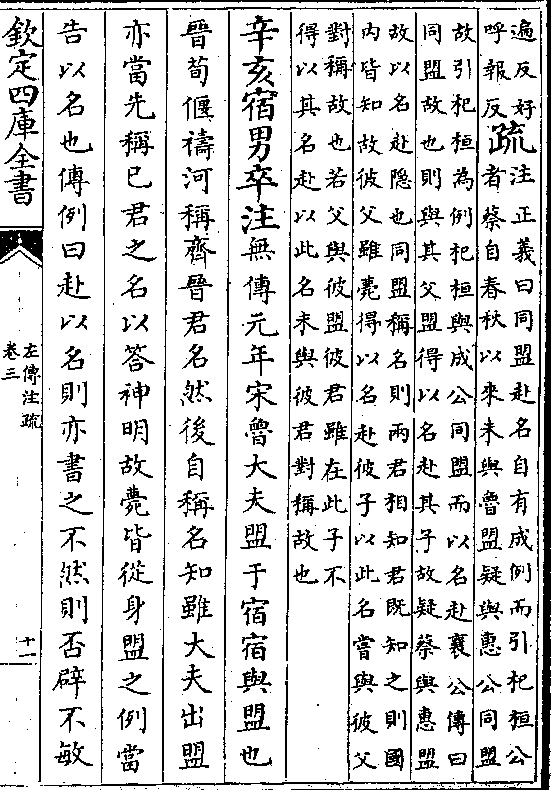 遍反好
呼報反
疏
注正義曰同盟赴名自有成例而引杞桓公
者蔡自春秋以來未與魯盟疑與惠公同盟
故引杞桓為例杞桓與成公同盟而以名赴襄公傳曰
同盟故也則與其父盟得以名赴其子故疑蔡與惠盟
故以名赴隐也同盟稱名則兩君相知君既知之則國
内皆知故彼父雖薨得以名赴彼子以此名嘗與彼父
對稱故也若父與彼盟彼君雖在此子不
得以其名赴以此名未與彼君對稱故也
辛亥宿男卒注無傳元年宋魯大夫盟于宿宿與盟也
晉荀偃禱河稱齊晉君名然後自稱名知雖大夫出盟
亦當先稱已君之名以答神明故薨皆從身盟之例當
告以名也傳例曰赴以名則亦書之不然則否辟不敏
欽定四庫全書
左傳注疏
卷三
十一